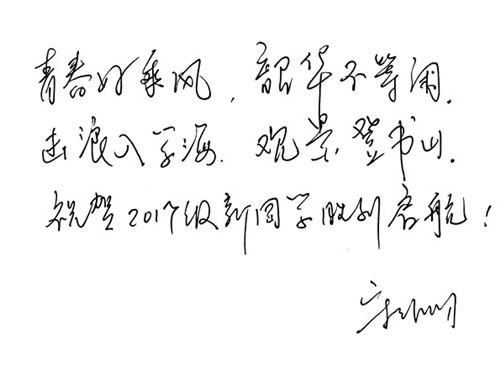 青春好乘风,韶华不等闲.
击浪入学海.观景登书山.
祝贺2017级新同学胜利启航!